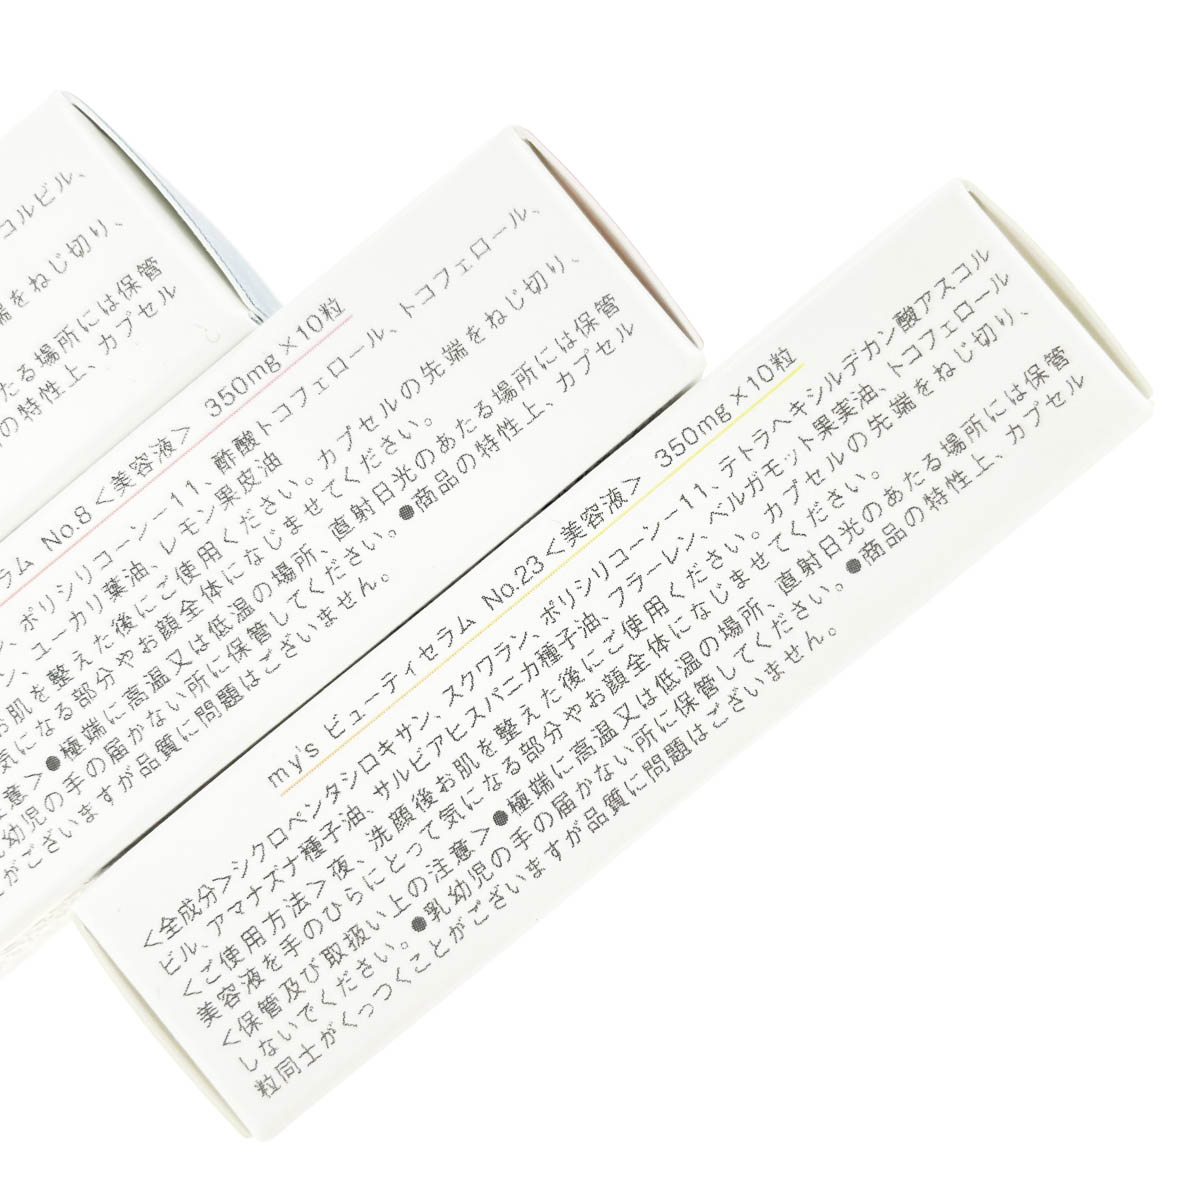 コルビル、
端をねじ切り、
たる場所には保管
の特性上、カプセル
ラム No.8＜美容液＞ 350mg×10粒
ン、ポリシリコーン-11、酢酸トコフェロール、トコフェロール、
ン、ユーカリ葉油、レモン果皮油
お肌を整えた後にご使用ください。カプセルの先端をねじ切り、
気になる部分やお顔全体になじませてください。
注意＞●極端に高温又は低温の場所、直射日光のあたる場所には保管
幼児の手の届かない所に保管してください。●商品の特性上、カプセル
がございますが品質に問題はございません。
my's ビューティセラム No.23＜美容液＞ 350mg×10粒
＜全成分＞シクロペンタシロキサン、スクワラン、ポリシリコーン-11、テトラヘキシルデカン酸アスコル
ビル、アマナズナ種子油、サルビアヒスパニカ種子油、フラーレン、ベルガモット果実油、トコフェロール
＜ご使用方法＞夜、洗顔後お肌を整えた後にご使用ください。カプセルの先端をねじ切り、
美容液を手のひらにとって気になる部分やお顔全体になじませてください。
＜保管及び取扱い上の注意＞●極端に高温又は低温の場所、直射日光のあたる場所には保管
しないでください。●乳幼児の手の届かない所に保管してください。●商品の特性上、カプセル
粒同士がくっつくことがございますが品質に問題はございません。